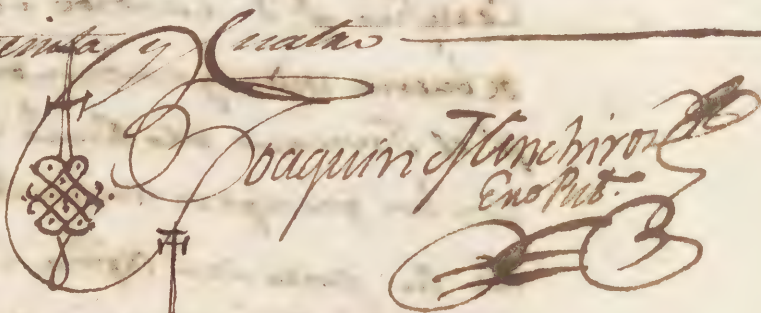 treinta y Quatro
Joaquin Menchiroz
Eno Pub.